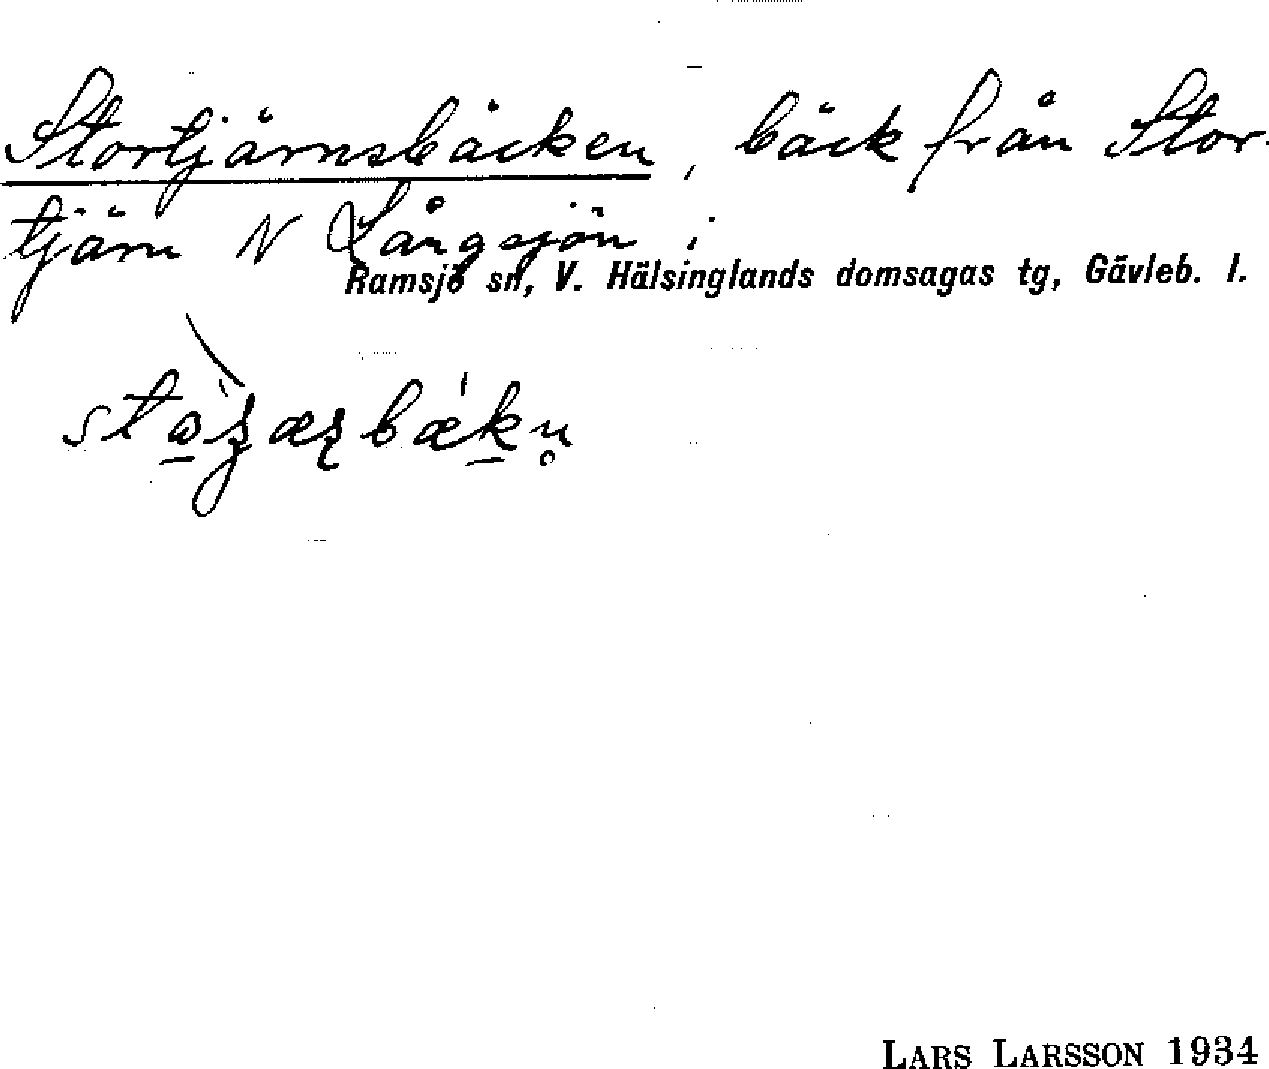 Stortjärnsbäcken, bäck från Stor-
tjärn N Långsjön i
Ramsjö sn, V. Hälsinglands domsagas tg, Gävleb. l.
LARS LARSSON 1934